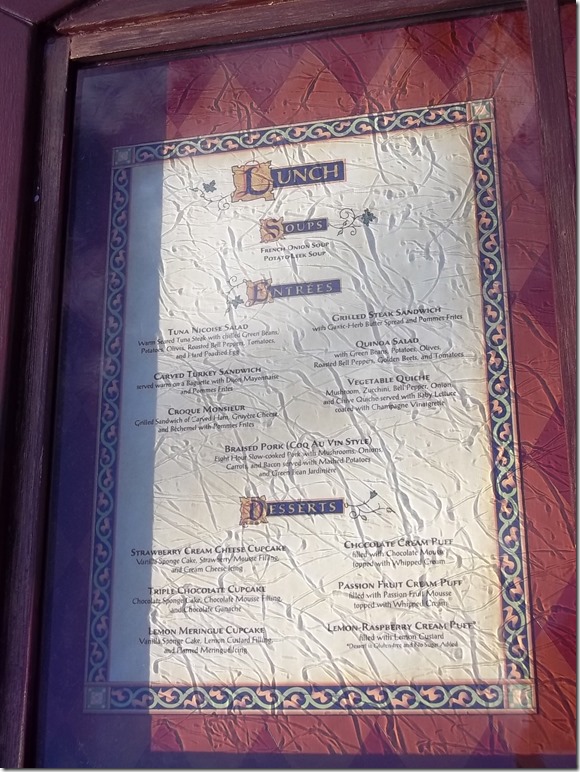 LUNCH
SOUPS
FRENCH ONION SOUP
POTATO LEEK SOUP
ENTRÉES
TUNA NICOISE SALAD
Warm Seared Tuna Steak with chilled Green Beans,
Potatoes, Olives, Roasted Bell Peppers, Tomatoes,
and Hard Poached Egg
CARVED TURKEY SANDWICH
served warm on a Baguette with Dijon Mayonnaise
and Pommes Frites
CROQUE MONSIEUR
Grilled Sandwich of Carved Ham, Gruyère Cheese,
and Béchamel with Pommes Frites
GRILLED STEAK SANDWICH
with Garlic-Herb Butter Spread and Pommes Frites
QUINOA SALAD
with Green Beans, Potatoes, Olives,
Roasted Bell Peppers, Golden Beets, and Tomatoes
VEGETABLE QUICHE
Mushroom, Zucchini, Bell Pepper, Onion,
and Chive Quiche served with Baby Lettuce
coated with Champagne Vinaigrette
BRAISED PORK (COQ AU VIN STYLE)
Eight Hour Slow-cooked Pork with Mushrooms, Onions,
Carrots, and Bacon served with Mashed Potatoes
and Green Bean Jardinière
DESSERTS
STRAWBERRY CREAM CHEESE CUPCAKE
Vanilla Sponge Cake, Strawberry Mousse Filling,
and Cream Cheese Icing
TRIPLE CHOCOLATE CUPCAKE
Chocolate Sponge Cake, Chocolate Mousse Filling,
and Chocolate Ganache
LEMON MERINGUE CUPCAKE
Vanilla Sponge Cake, Lemon Custard Filling,
and Flamed Meringue Icing
CHOCOLATE CREAM PUFF
filled with Chocolate Mousse
topped with Whipped Cream
PASSION FRUIT CREAM PUFF
filled with Passion Fruit Mousse
topped with Whipped Cream
LEMON-RASPBERRY CREAM PUFF*
filled with Lemon Custard
*Dessert is Gluten-free and No Sugar Added